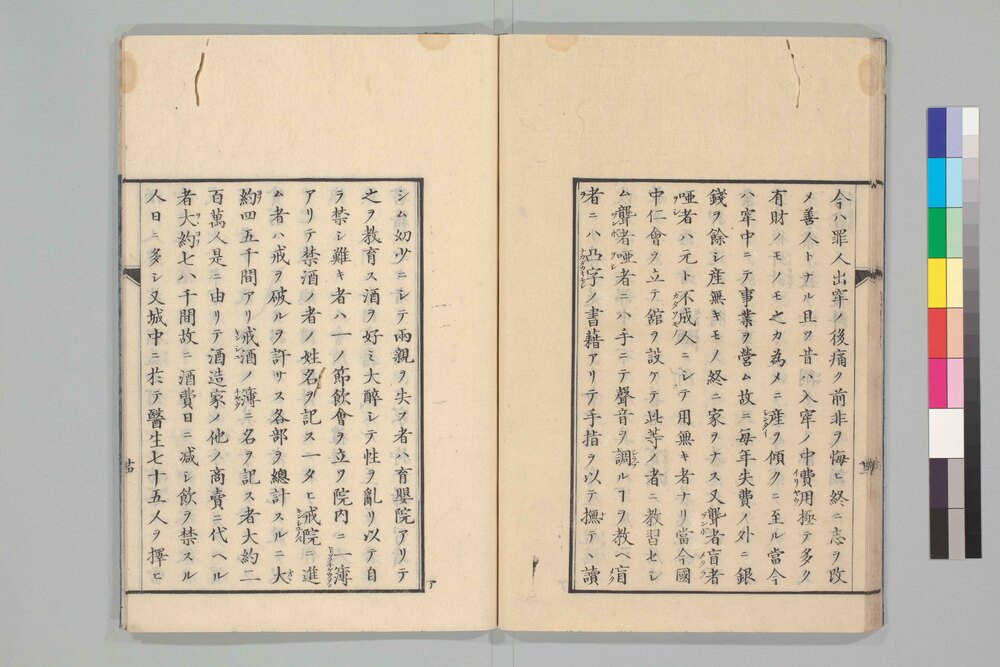 今ハ罪人出牢ノ後痛ク前非ヲ悔ヒ終ニ志ヲ改
メ善人トナル且ツ昔ハ入牢ノ中費用極テ多ク
有財ノモノモ之カ為メニ産ヲ傾クニ至ル當今
ハ牢中ニテ事業ヲ營ム故ニ毎年失費ノ外ニ銀
錢ヲ餘シ産無キモノ終ニ家ヲナス又聾者盲者
啞者ハ元ト不成人ニシテ用無キ者ナリ當今國
中仁會ヲ立テ舘ヲ設ケテ此等ノ者ニ教習セシ
ム聾者啞者ニハ手ニテ聲音ヲ調ルヿヲ教ヘ盲
者ニハ凸字ノ書籍アリテ手指ヲ以テ撫テヽ讀
シム幼少ニシテ兩親ヲ失フ者ハ育嬰院アリテ
之ヲ教育ス酒ヲ好ミ大醉シテ性ヲ亂リ以テ自
ラ禁シ難キ者ハ一ノ節飲會ヲ立ツ院内ニ一簿
アリテ禁酒ノ者ノ姓名ヲ記ス一タヒ戒院ニ進
ム者ハ戒ヲ破ルヲ許サス各部ヲ總計スルニ大
約四五千間アリ戒酒ノ簿ニ名ヲ記ス者大約二
百萬人是ニ由リテ酒造家ノ他ノ商賣ニ代ヘル
者大約七八千間故ニ酒費日ニ減シ飲ヲ禁スル
人日ニ多シ又城中ニ於テ醫生七十五人ヲ擇ヒ